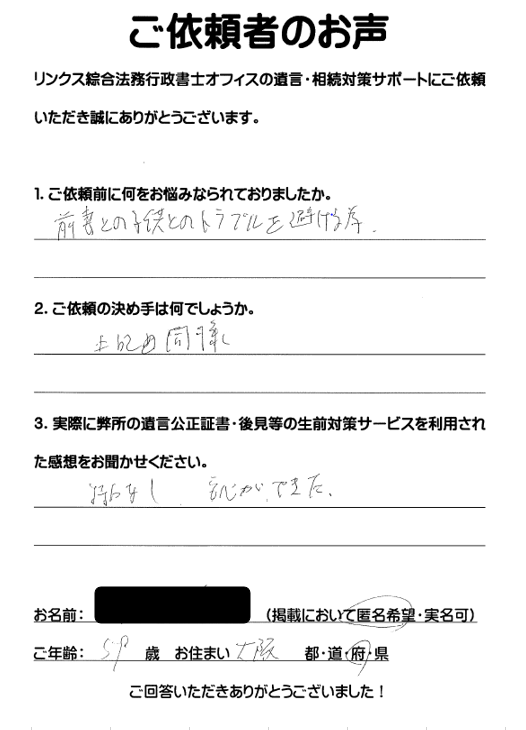 ご依頼者のお声
リンクス綜合法務行政書士オフィスの遺言・相続対策サポートにご依頼
いただき誠にありがとうございます。
1. ご依頼前に何をお悩みなられておりましたか。
前妻との子供とのトラブルを避ける為.
2. ご依頼の決め手は何でしょうか。
上記め同様
3. 実際に弊所の遺言公正証書・後見等の生前対策サービスを利用され
た感想をお聞かせください。
特になし 安心ができた.
お名前： （掲載において匿名希望・実名可）
ご年齢： 59 歳 お住まい 大阪 都・道・府・県
ご回答いただきありがとうございました！